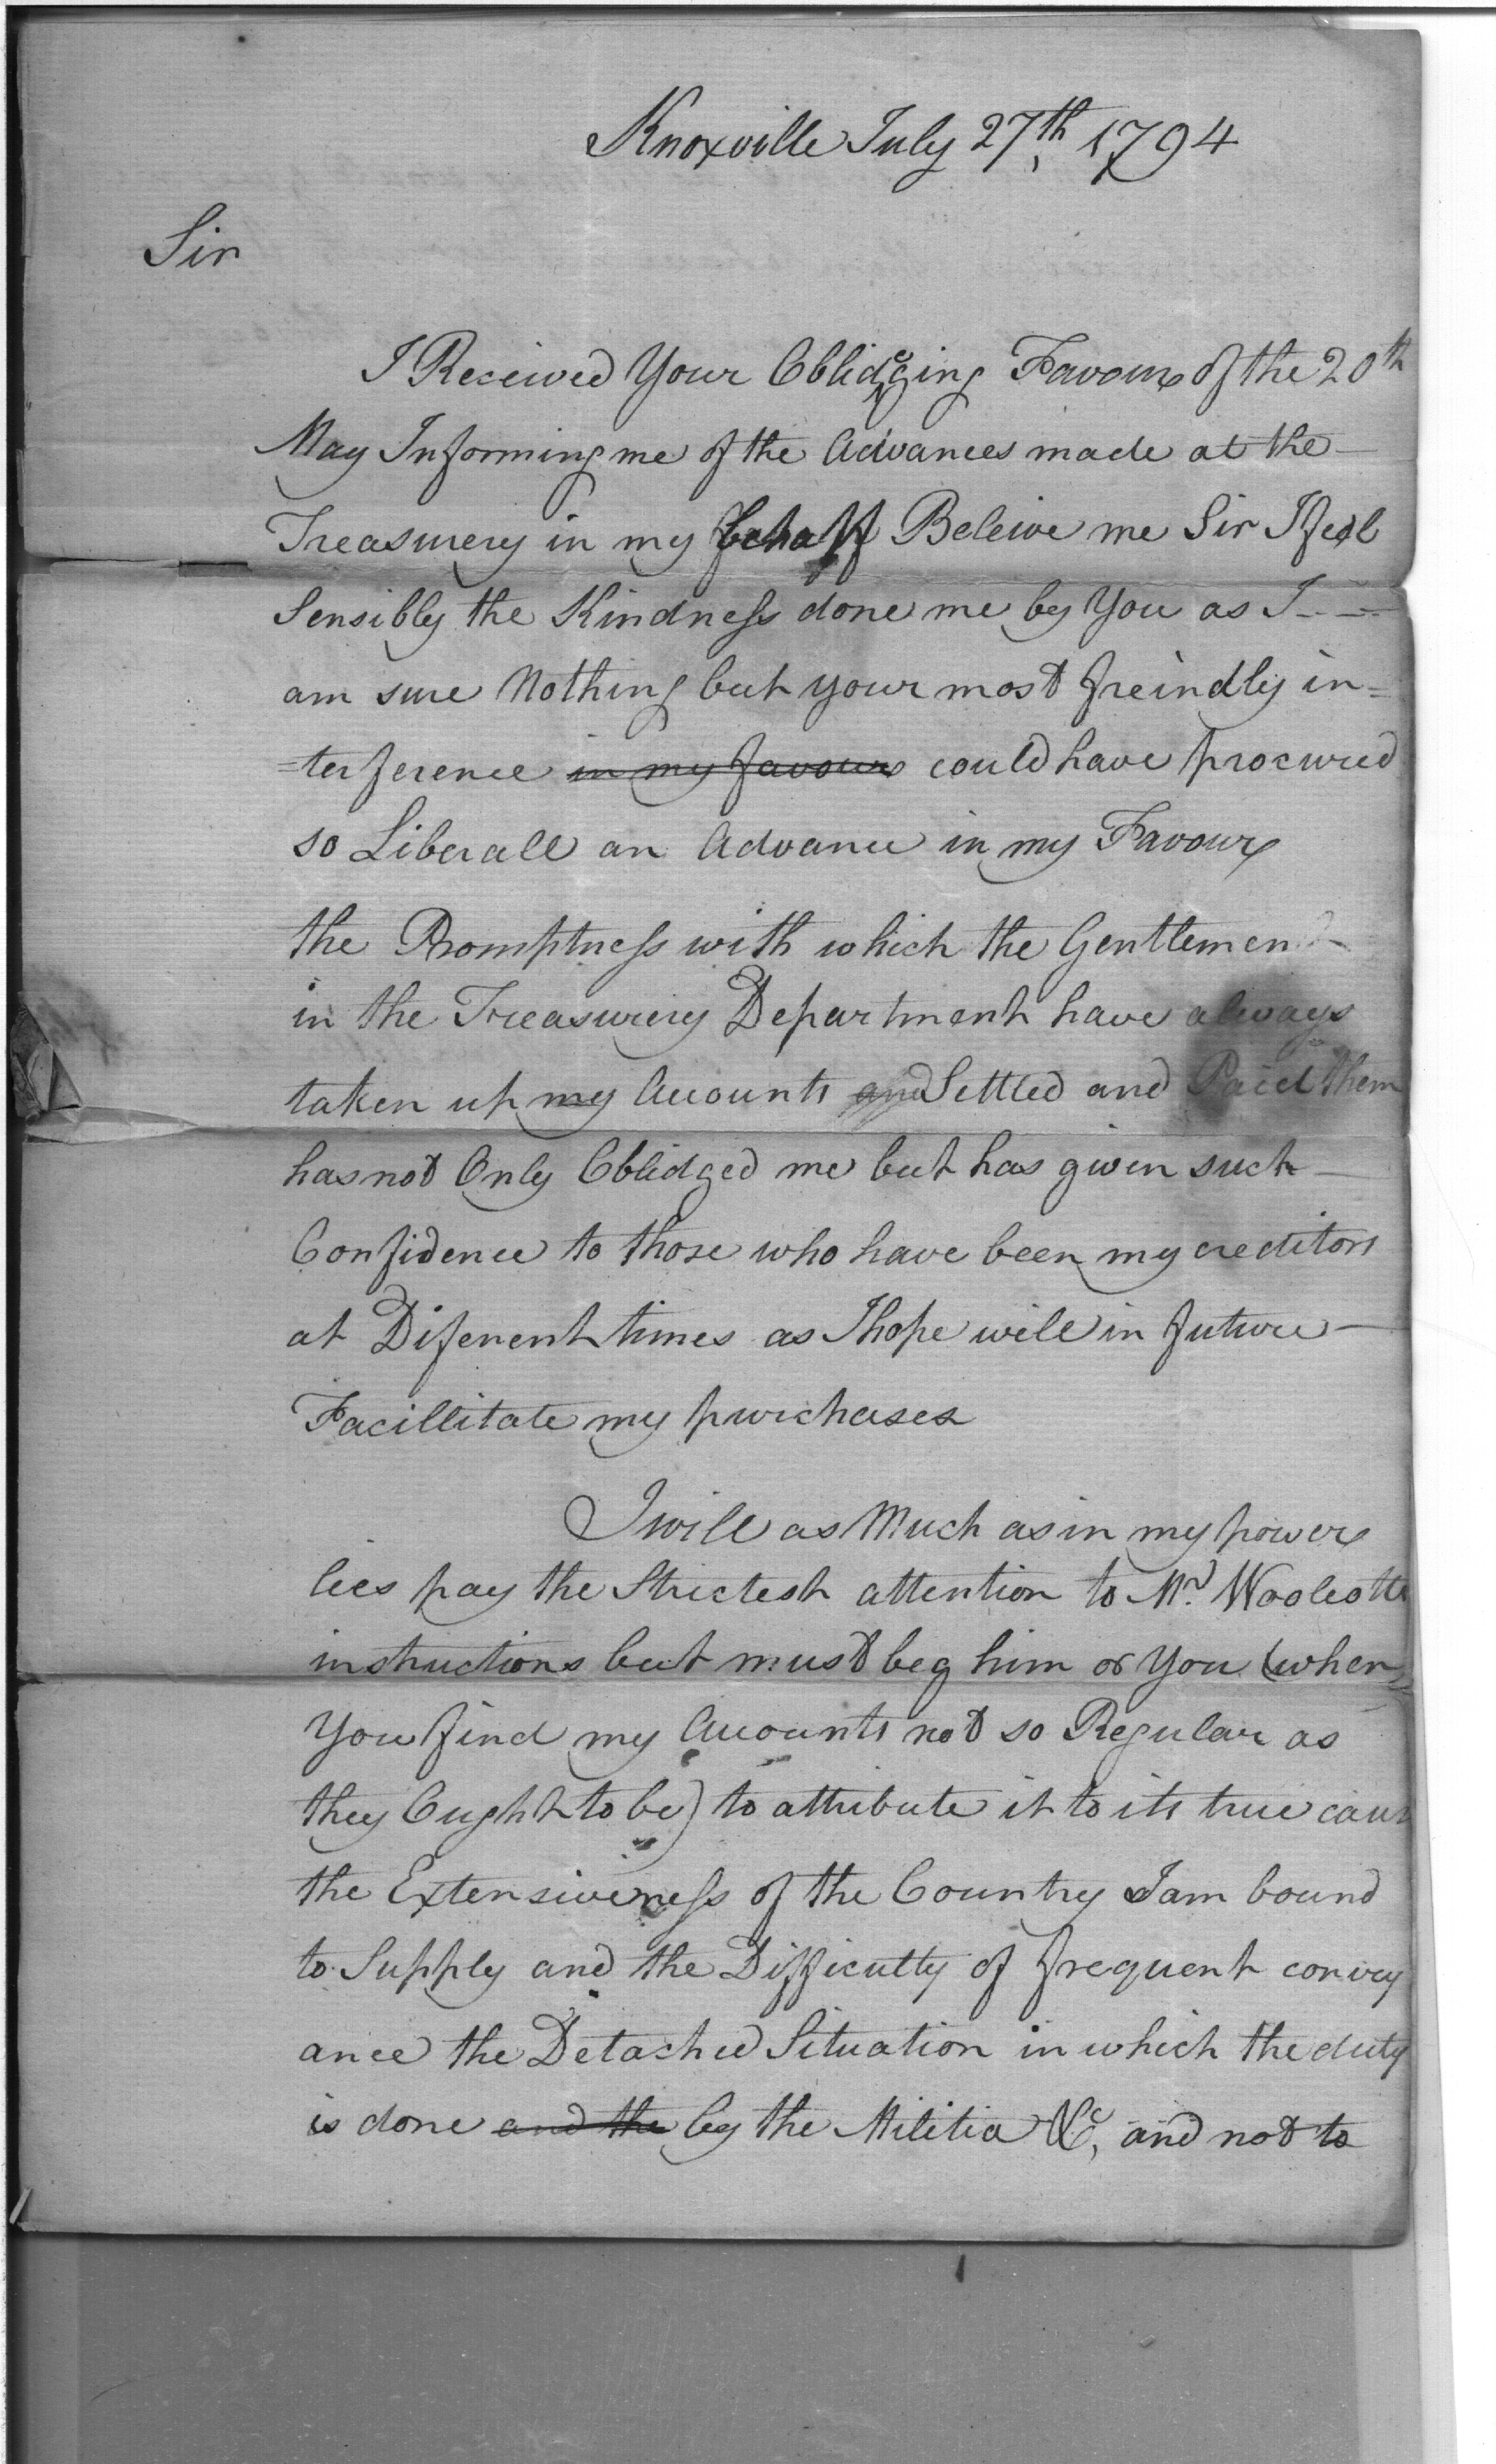 Knoxville July 27th, 1794
Sir
I Received Your Oblidgeing Favour of the 20th
May Informing me of the Advances made at the
Treasurery in my behalf Beleive me Sir I feel
Sensibly the Kindness done me by You as I
am sure Nothing but your most freindly in=
=terference in my favour could have procured
so Liberall an Advance in my Favour
the Promptness with which the Gentlemen
in the Treasurery Department have always
taken up my Accounts and Settled and Paid them
has not Only Oblidged me but has given such
Confidence to those who have been my creditors
at Diferent times as I hope will in future
Facillitate my purchases
I will as Much as in my power
lies pay the Strictest attention to Mr. Woolcotts
instructions but must beg him or You (when
You find my Accounts not so Regular as
they Ought to be) to attribute it to its true cause
the Extensiveness of the Country I am bound
to Supply and the Difficulty of frequent convey
ance the Detached Situation in which the duty
is done and the by the Militia &c, and not to